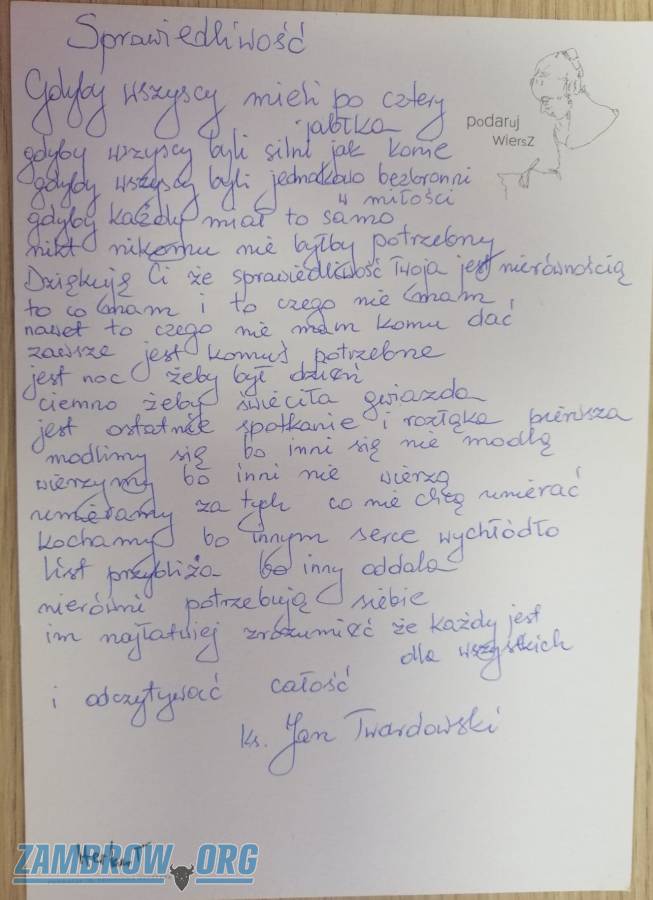 Sprawiedliwość
Gdyby wszyscy mieli po cztery
jabłka
podaruj
WiersZ
gdyby wszyscy byli silni jak konie
gdyby wszyscy byli jednakowo bezbronni
w miłości
gdyby każdy miał to samo
nikt nikomu nie byłby potrzebny
Dziękuję Ci że sprawiedliwość Twoja jest nierównością
to co mam i to czego nie mam
nawet to czego nie mam komu dać
zawsze jest komuś potrzebne
jest noc żeby był dzień
ciemno żeby świeciła gwiazda
jest ostatnie spotkanie i rozłąka pierwsza
modlimy się bo inni się nie modlą
wierzymy bo inni nie wierzą
umieramy za tych co nie chcą umierać
kochamy bo innym serce wychłódło
list przybliża bo inny oddala
nierówni potrzebują siebie
im najłatwiej zrozumieć że każdy jest
dla wszystkich
i odczytywać całość
ks. Jan Twardowski
ZAMBROW.ORG